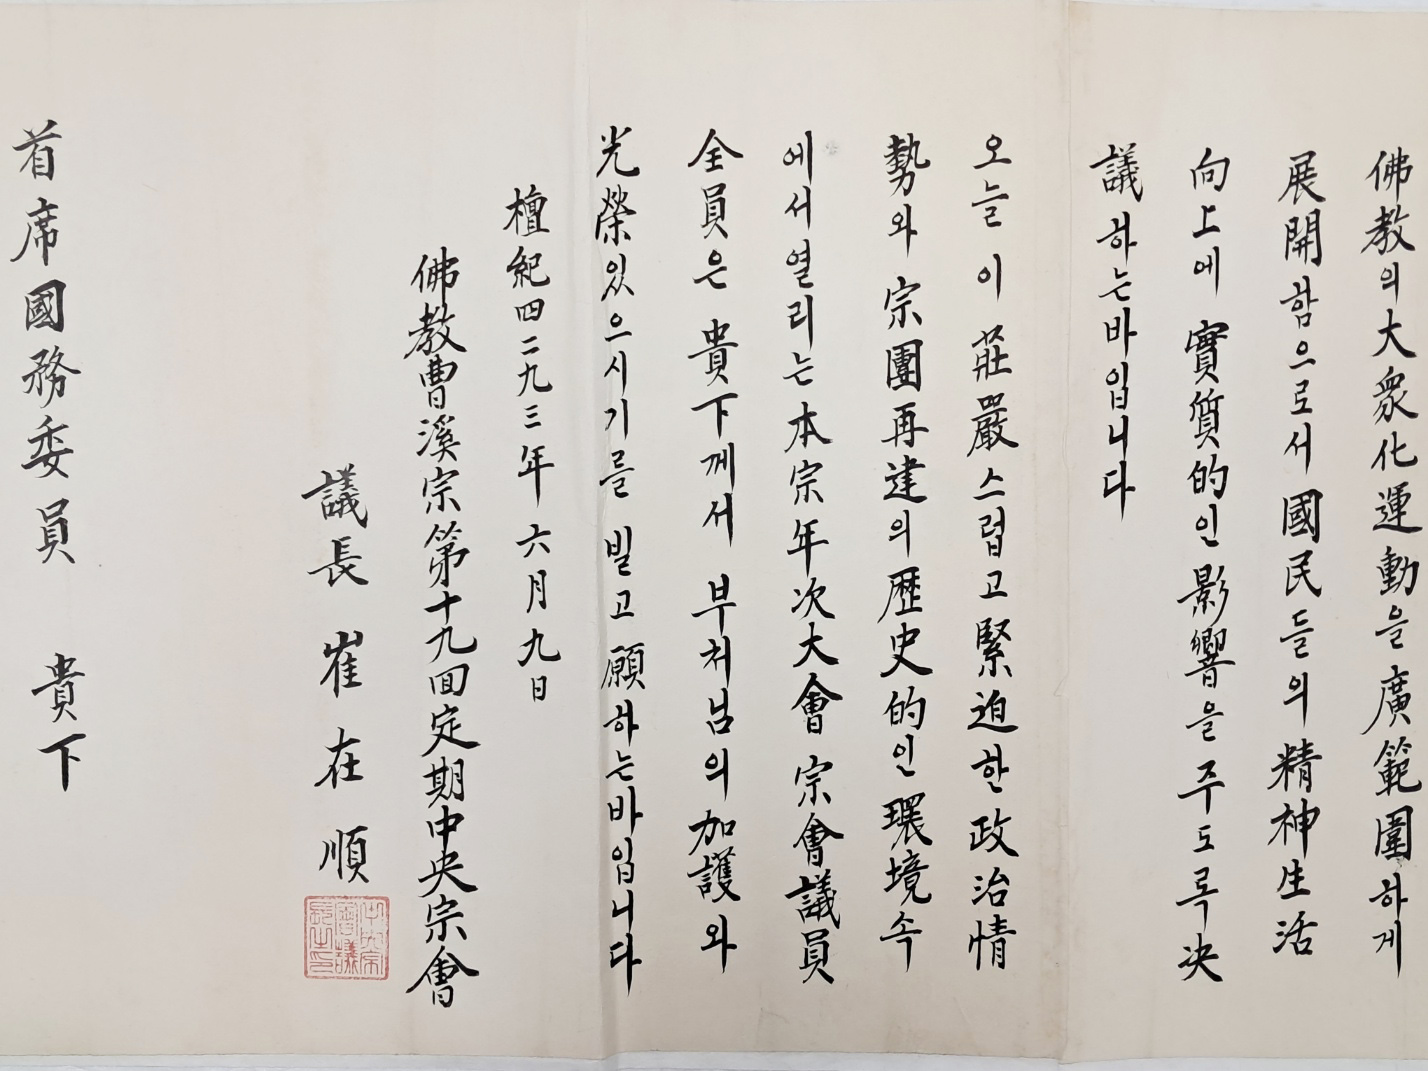 佛教의 大衆化運動을 廣範圍하게
展開함으로서 國民들의 精神生活
向上에 實質的인 影響을 주도록 决
議하는바입니다
오늘 이 莊嚴스럽고 緊迫한 政治情
勢와 宗團再建의 歷史的인 環境속
에서 열리는 本宗年次大會 宗會議員
全員은 貴下께서 부처님의 加護와
光榮있으시기를 빌고 願하는바입니다
檀紀四二九三年 六月 九日
佛教曹溪宗第十九回定期中央宗會
議長 崔在順
中央宗會議長之印
首席國務委員 貴下